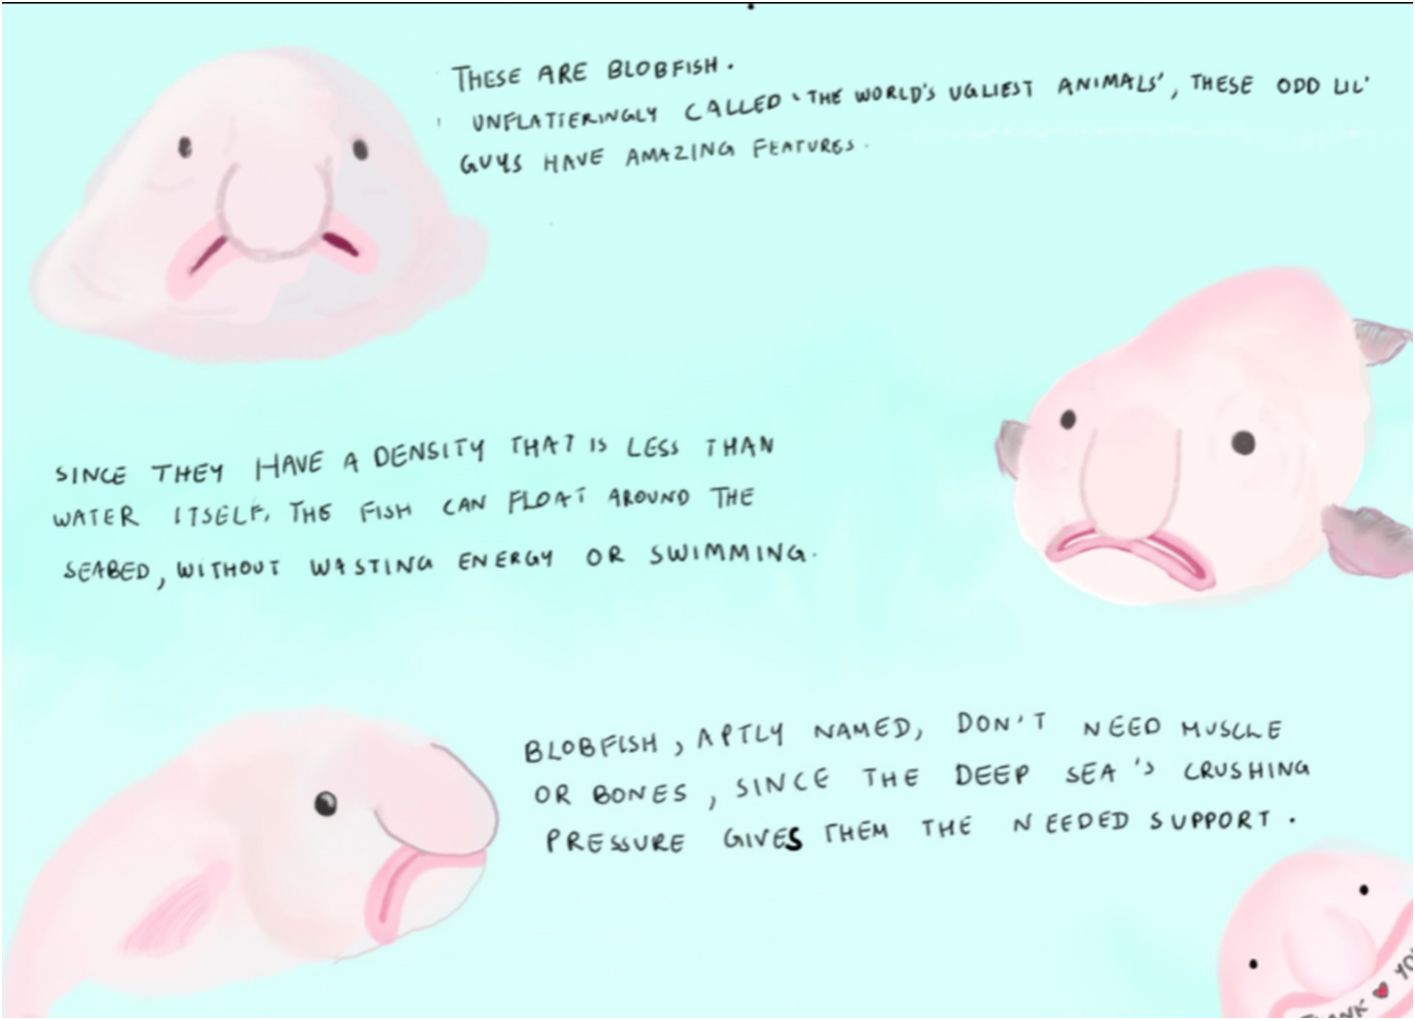 THESE ARE BLOBFISH.
UNFLATTERINGLY CALLED 'THE WORLD'S UGLIEST ANIMALS', THESE ODD LIL'
GUYS HAVE AMAZING FEATURES.
SINCE THEY HAVE A DENSITY THAT IS LESS THAN
WATER ITSELF, THE FISH CAN FLOAT AROUND THE
SEABED, WITHOUT WASTING ENERGY OR SWIMMING.
BLOBFISH, APTLY NAMED, DON'T NEED MUSCLE
OR BONES, SINCE THE DEEP SEA'S CRUSHING
PRESSURE GIVES THEM THE NEEDED SUPPORT.
THANK ♥ YO